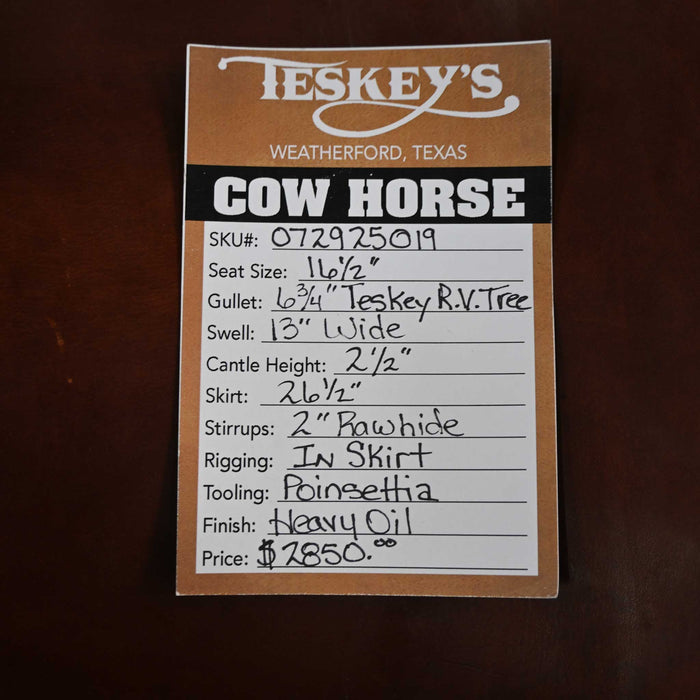 TESKEY'S
WEATHERFORD, TEXAS
COW HORSE
SKU#: 072925019
Seat Size: 16 1/2"
Gullet: 6 3/4" Teskey R.V. Tree
Swell: 13" Wide
Cantle Height: 2 1/2"
Skirt: 26 1/2"
Stirrups: 2" Rawhide
Rigging: In Skirt
Tooling: Poinsettia
Finish: Heavy Oil
Price: $2850.00